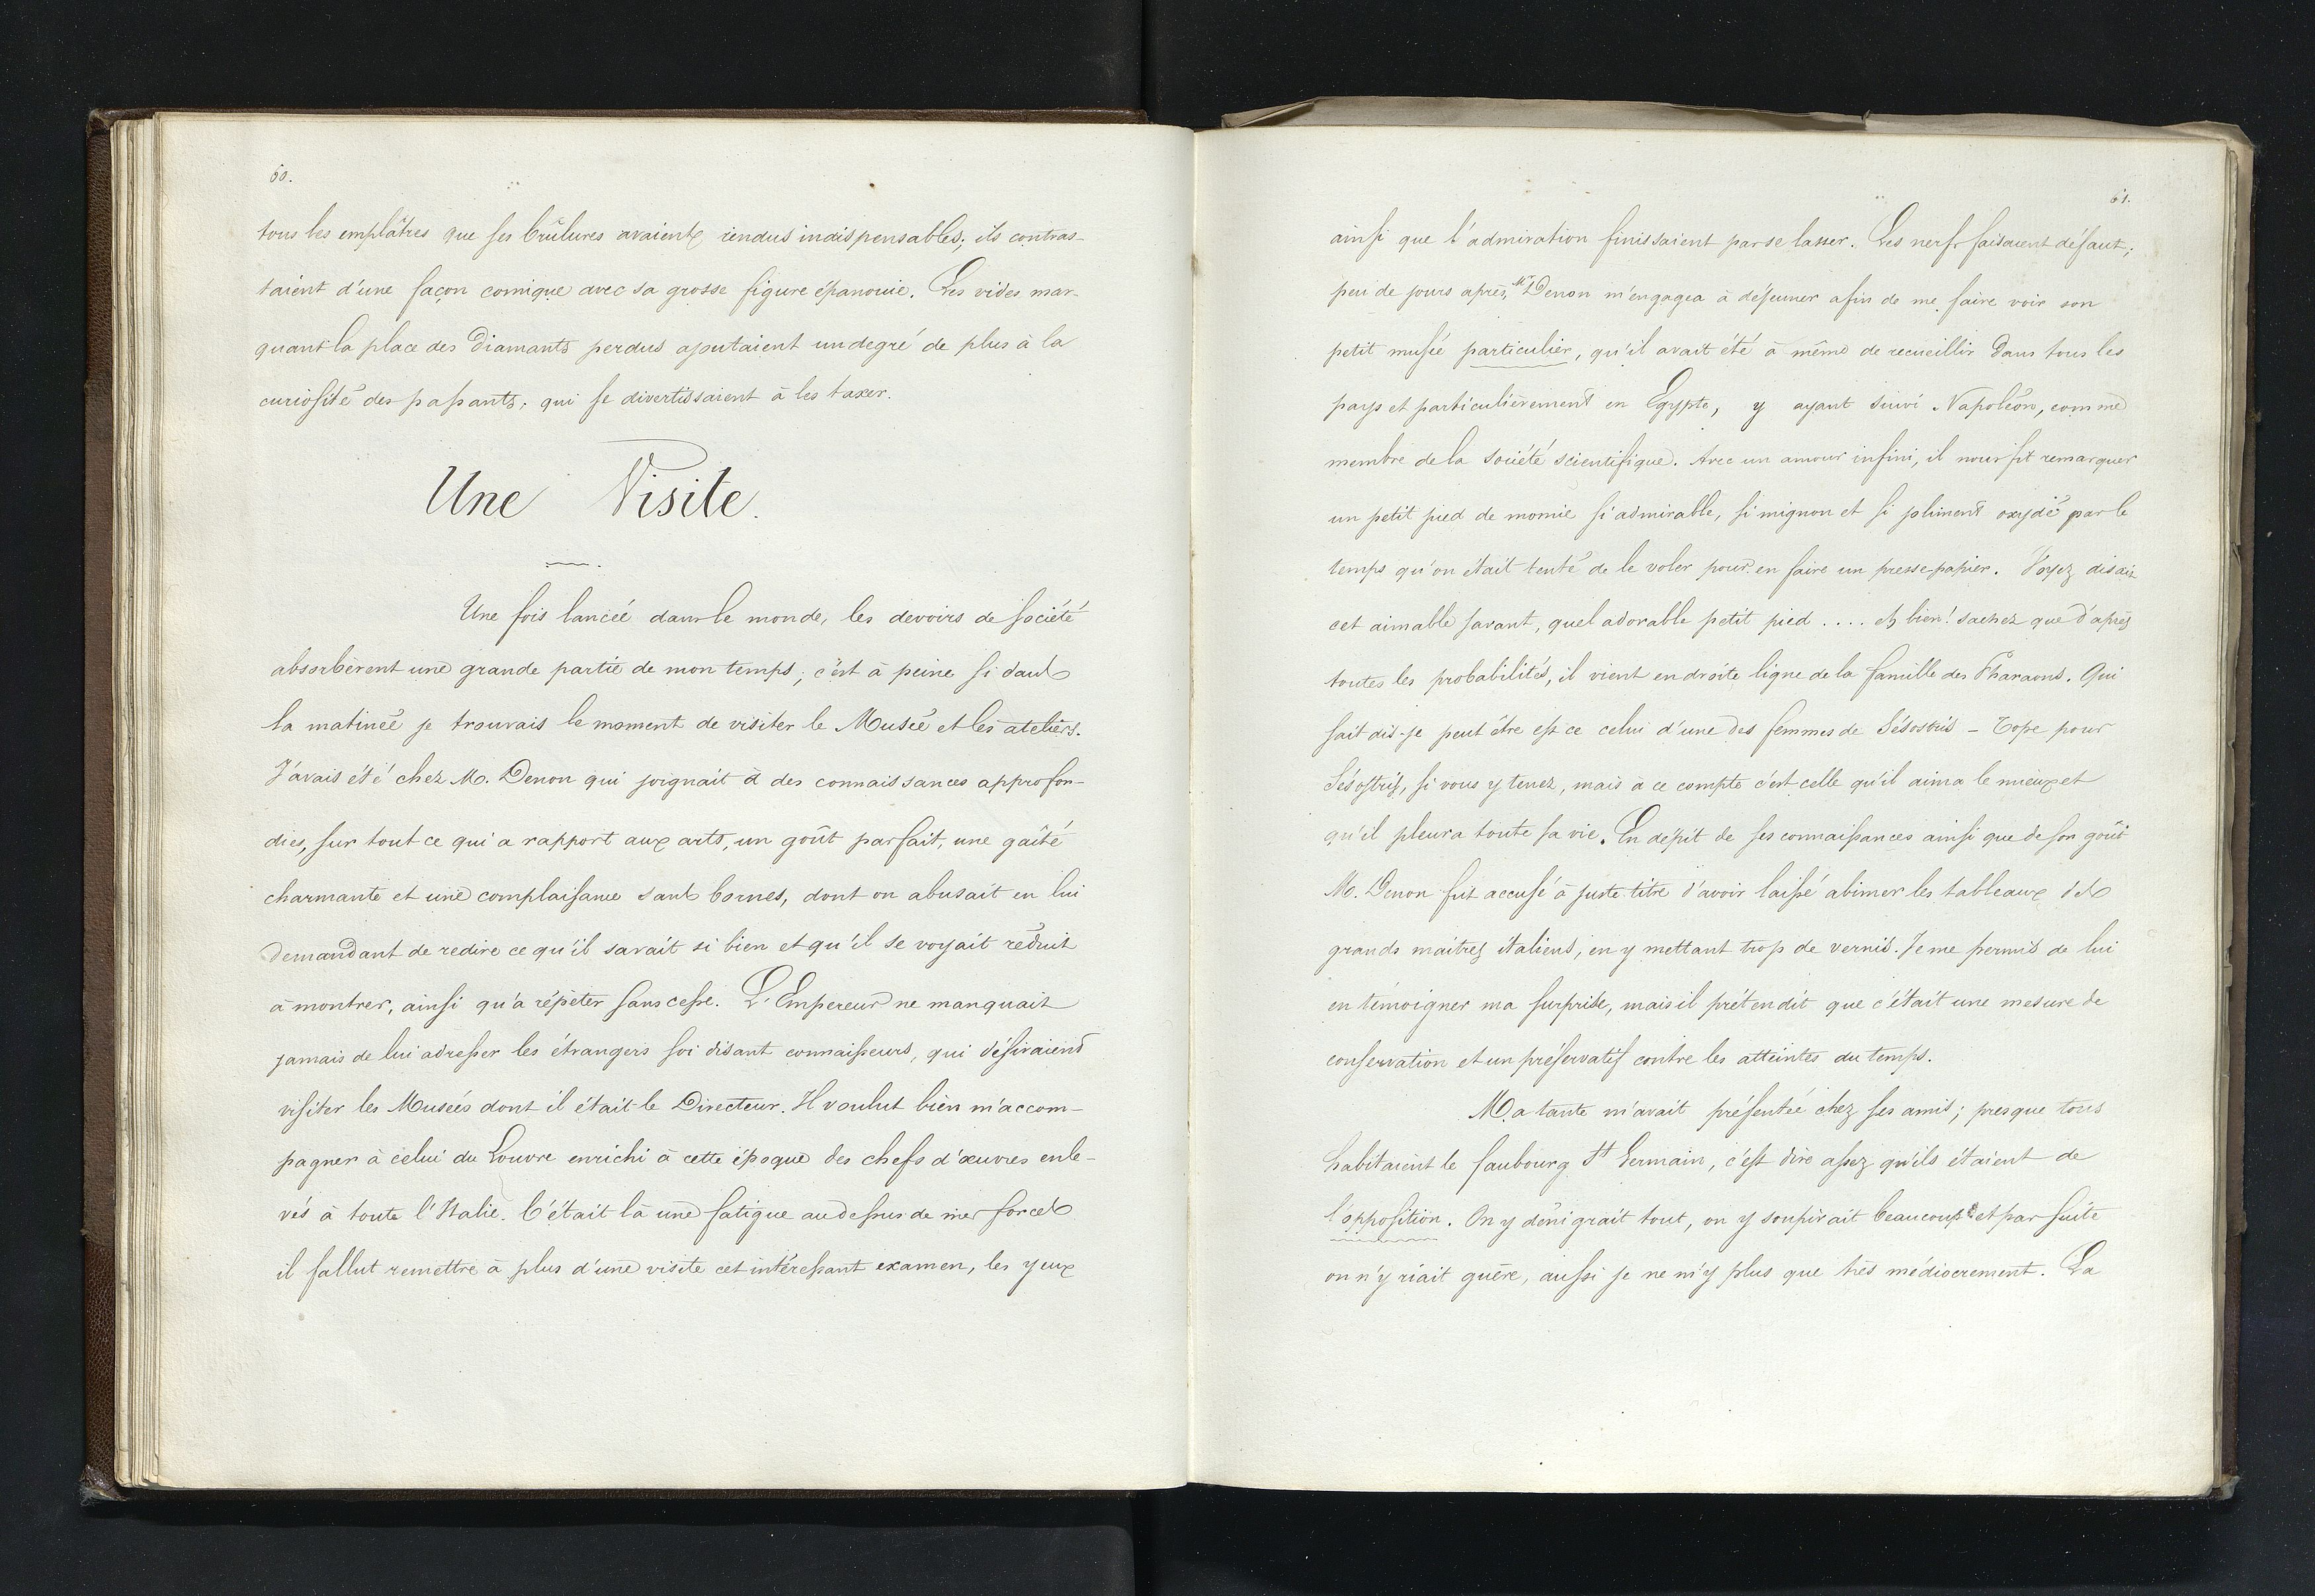 60.
tous les emplâtres que ses brûlures avaient rendus indispensables; ils contras-
taient d'une façon comique avec sa grosse figure épanouie. Les vides mar-
quant la place des diamants perdus ajoutaient un degré de plus à la
curiosité des passants; qui se divertissaient à les taxer.
Une Visite.
Une fois lancée dans le monde, les devoirs de société
absorbèrent une grande partie de mon temps; c'est à peine si dans
la matinée je trouvais le moment de visiter le Musée et les ateliers.
J'avais été chez M. Denon qui joignait à des connaissances approfon-
dies, sur tout ce qui a rapport aux arts, un goût parfait, une gaîté
charmante et une complaisance sans bornes, dont on abusait en lui
demandant de redire ce qu'il savait si bien et qu'il se voyait réduit
à montrer, ainsi qu'à répéter sans cesse. L'Empereur ne manquait
jamais de lui adresser les étrangers soi disant connaisseurs, qui désiraient
visiter les Musées dont il était le Directeur. Il voulut bien m'accom-
pagner à celui du Louvre enrichi à cette époque des chefs d'œuvres enle-
vés à toute l'Italie. C'était là une fatigue au dessus de mes forces
il fallut remettre à plus d'une visite cet intéressant examen, les yeux
61.
ainsi que l'admiration finissaient par se lasser. Les nerfs faisaient défaut;
peu de jours après, Mr Denon m'engagea à déjeuner afin de me faire voir son
petit musée particulier, qu'il avait été à même de recueillir dans tous les
pays et particulièrement en Egypte, y ayant suivi Napoléon, comme
membre de la société scientifique. Avec un amour infini, il nous fit remarquer
un petit pied de momie si admirable, si mignon et si joliment oxydé par le
temps qu'on était tenté de le voler pour en faire un presse-papier. Voyez disait
cet aimable savant, quel adorable petit pied .... eh bien! sachez que d'après
toutes les probabilités, il vient en droite ligne de la famille des Pharaons. Qui
sait dis-je peut être est ce celui d'une des femmes de Sésostris - Tope pour
Sésostris, si vous y tenez, mais à ce compte c'est celle qu'il aima le mieux et
qu'il pleura toute sa vie. En dépit de ses connaissances ainsi que de son goût
M. Denon fut accusé à juste titre d'avoir laissé abimer les tableaux des
grands maitres italiens, en y mettant trop de vernis. Je me permis de lui
en témoigner ma surprise, mais il prétendit que c'était une mesure de
conservation et un préservatif contre les atteintes du temps.
Ma tante m'avait présentée chez ses amis; presque tous
habitaient le faubourg St Germain, c'est dire assez qu'ils étaient de
l'opposition. On y dénigrait tout, on y soupirait beaucoup et par suite
on n'y riait guère, aussi je ne m'y plus que très médiocrement. La